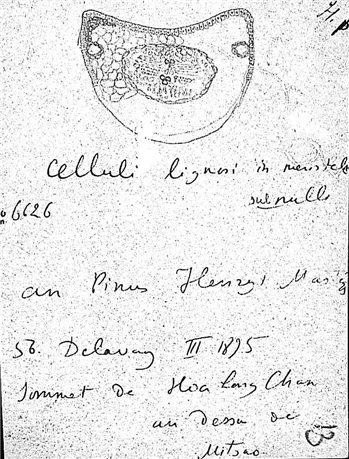 Celluli lignosi in meristele
sub nulli
no 6626
an Pinus Henryi Mast
56. Delavay III 1895
Sommet de Hoa lang Chan
au dessu de
Mitsao
13